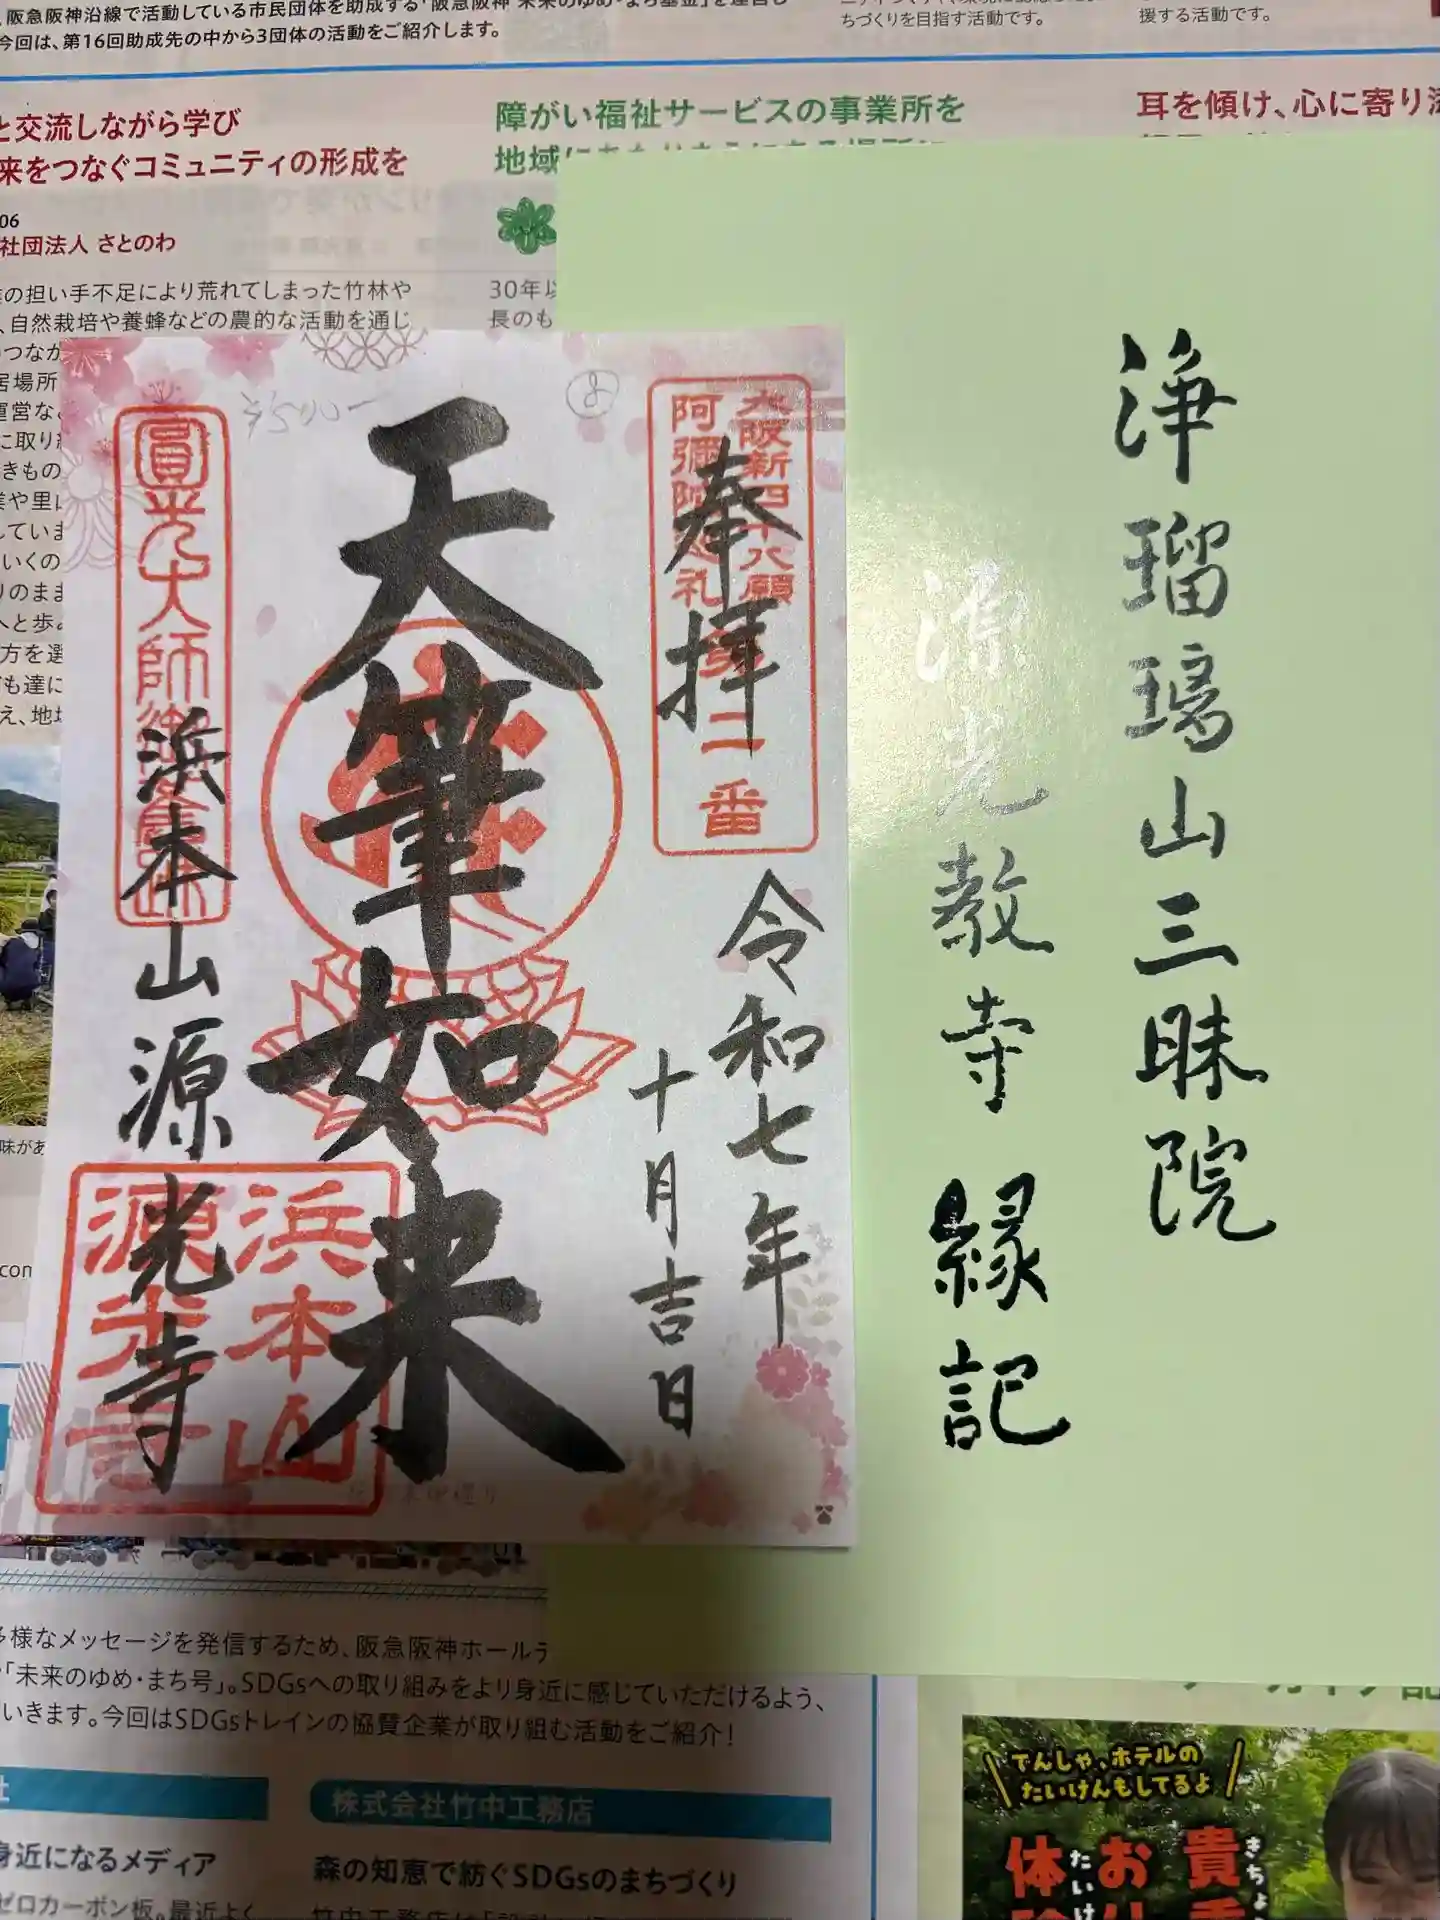 阪急阪神沿線で活動している市民団体を助成する「阪急阪神 未来のゆめ・まち基金」を運営し
今回は、第16回助成先の中から3団体の活動をご紹介します。
ちづくりを目指す活動です。
援する活動です。
と交流しながら学び
来をつなぐコミュニティの形成を
06
社団法人 さとのわ
の担い手不足により荒れてしまった竹林や
、自然栽培や養蜂などの農的な活動を通じ
のつなが
居場所
運営な
に取り
きもの
業や里山
していま
いくの
りのまま
へと歩
方を選
も達に
え、地
障がい福祉サービスの事業所を
地域にあ
30年以
長のも
耳を傾け、心に寄り添
浄瑠璃山三昧院
源光教寺 縁記
大阪新四十八願
阿彌陀巡礼 第二番
奉拝
令和七年
十月吉日
天筆如来
圓光大師御
浜本山源光寺
浜本山
源光寺
¥500-
味があ
.com
多様なメッセージを発信するため、阪急阪神ホールデ
「未来のゆめ・まち号」。SDGsへの取り組みをより身近に感じていただけるよう、
いきます。今回はSDGsトレインの協賛企業が取り組む活動をご紹介!
社
株式会社竹中工務店
身近になるメディア
森の知恵で紡ぐSDGsのまちづくり
ゼロカーボン板。最近よく
でんしゃ、ホテルの
たいけんもしてるよ
貴重
きちょ
お
体験
たいけ